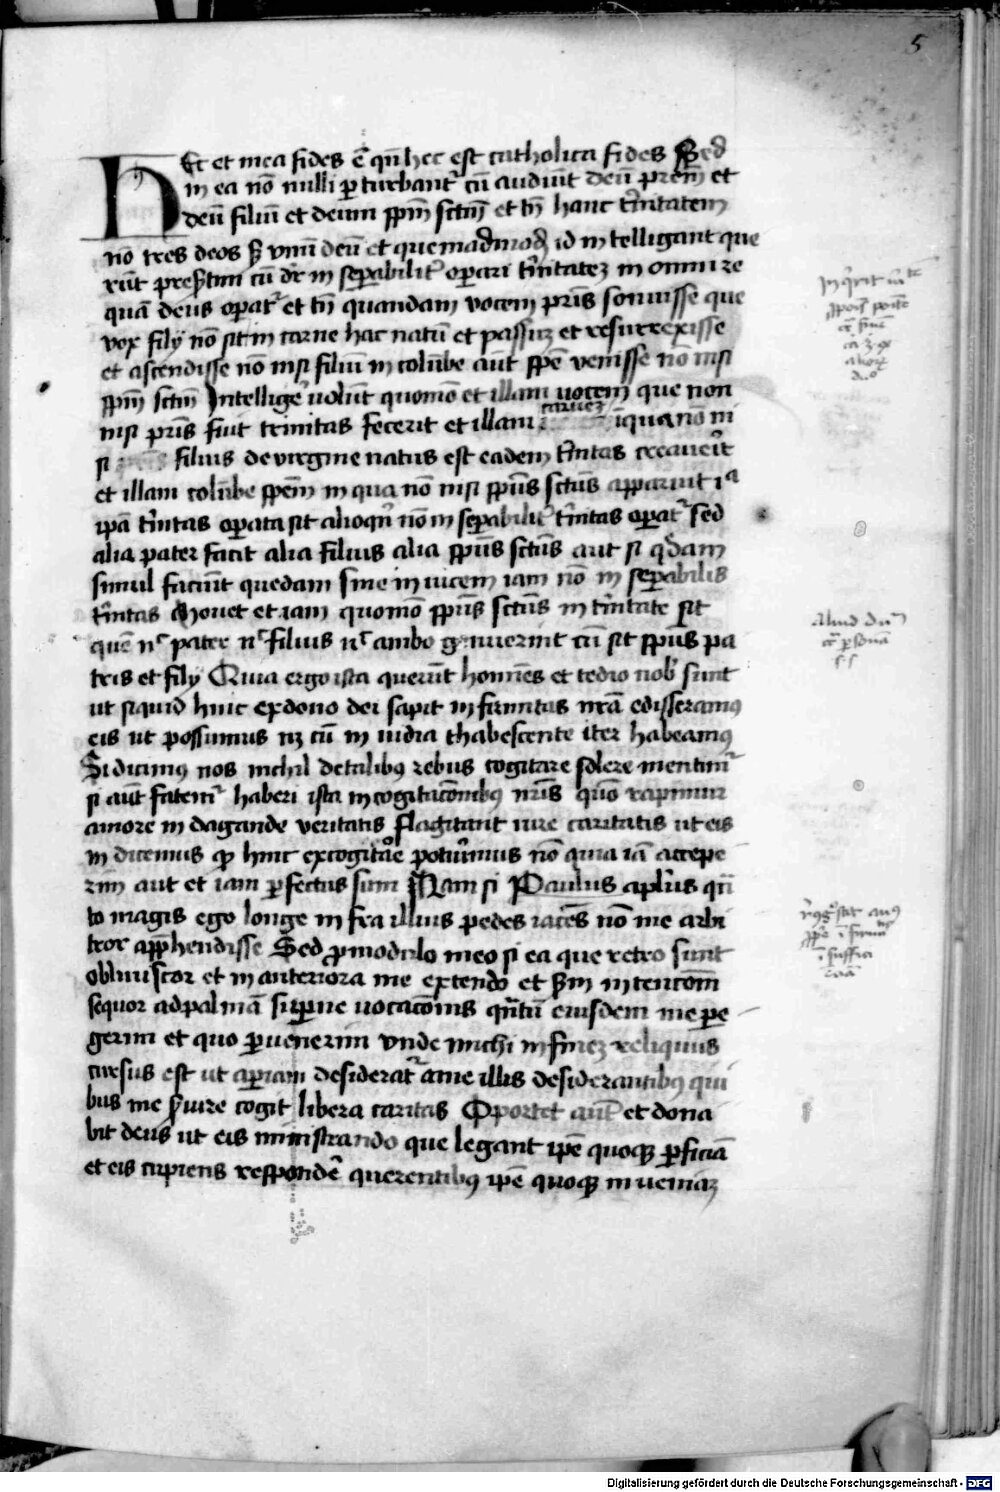 5
HEc et mea fides ē qn̄ hec est catholica fides Sed
in ea nō nulli perturbant᷑ cū audiūt deū prem̄ et
deū filiū et deum spm̄ sctm̄ et tn̄ hanc t'nitatem
nō tres deos sꝫ vnū deū et quemadmodū id intelligant que
rūt presertim cū dr̄ inseparabilit᷑ operari t'nitatē in omni re
quā deus opat᷑ et tn̄ quandam vocem pris̄ sonuisse que
vox filij nō sit in carne hac natū et passuꝫ et resurrexisse
et ascendisse nō nisi filiū in colūbe aūt spē venisse nō nisi
spm̄ sctm̄ Intellige᷑ uolūt quomō et illam uocem que non
nisi pris̄ fuit trinitas fecerit et illam carnez in qua nō ni
si filius de virgine natus est eadem t'nitas creauerit
et illam colūbe spēm in qua nō nisi spūs sctūs apparuit iª
ipā t'nitas operata sit alioqn̄ nō inseparabilit᷑ t'nitas operat᷑ sed
alia pater facit alia filius alia spūs sctūs aut si qdam
simul faciūt quedam sine inuicem iam nō inseparabilis
t'nitas Mouet etiam quomō spūs sctūs in t'nitate sit
quē nͨ pater nͨ filius nͨ ambo genuerint cū sit spūs pa
tris et filij Quia ergo ista querūt homīes et tedio nob᷑ sunt
ut siquid hinc ex dono dei sapit infirmitas nrā edisseramꝰ
eis ut possumus nꝫ cū inuidia thabescente iter habeamꝰ
Si dicimꝰ nos nichil de talibꝰ rebus cogitare solere mentim᷑
si aūt fatem᷑ haberi ista in cogitacōnibꝰ nris̄ qūo rapimur
amore indagande veritatis flagitant iure caritatis ut eis
indicemus qͥ hinc excogitare potuimus nō quia iā accepe
rim aut etiam perfectus sum Nam si Paulus aplūs qn̄
to magis ego longe infra illius pedes iacēs nō me arbi
tror apprehendisse Sed pro modulo meo si ea que retro sunt
obliuiscor et in anteriora me extendo et sm̄ intencōm
sequor ad palmā superne uocacōnis qn̄tū eiusdem me pe
gerim et quo peruenerim vnde michi in finez reliquus
cursus est ut aperiam desiderat᷑ a me illis desiderantibꝰ qui
bus me seruire cogit libera caritas Oportet aūt et dona
bit deus ut eis ministrando que legant ipē quoqꝫ perficiā
et eis cupiens respondē᷑ querentibꝰ ipē quoqꝫ inueniaꝫ
Digitalisierung gefördert durch die Deutsche Forschungsgemeinschaft - DFG